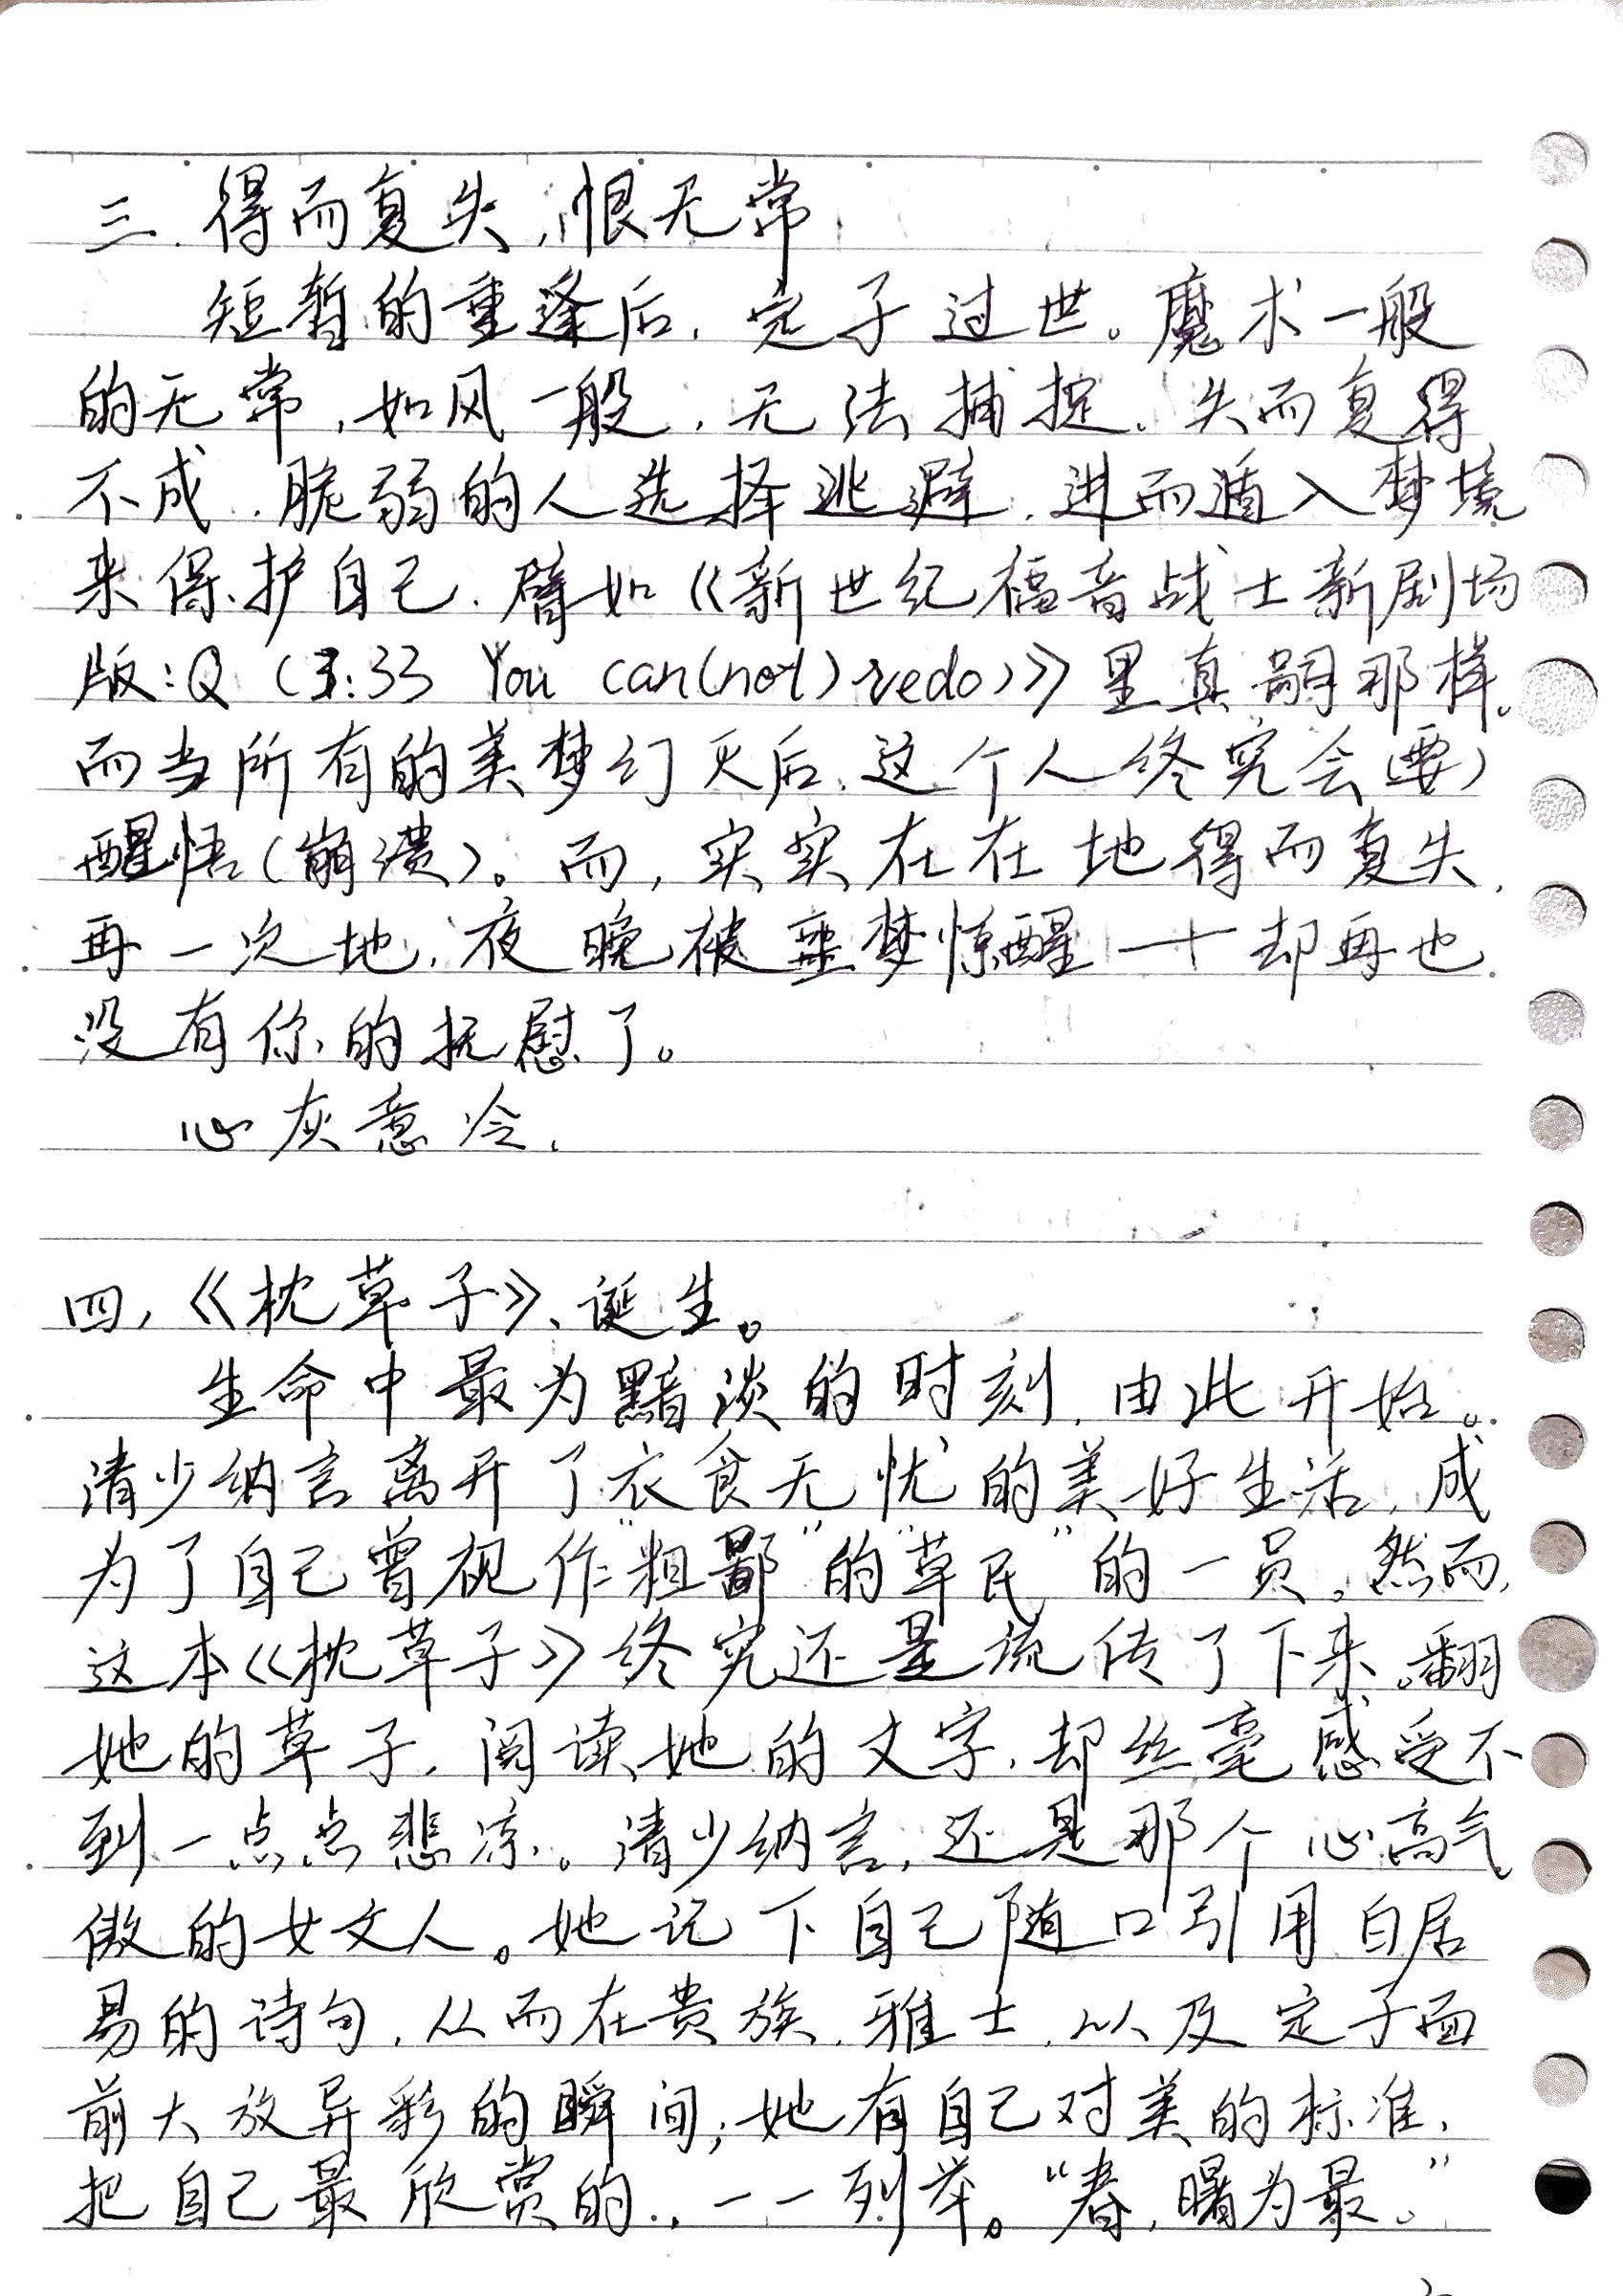 三.得而复失,恨无常
短暂的重逢后,定子过世。魔术一般
的无常,如风一般,无法捕捉.失而复得
不成,脆弱的人选择逃避,进而遁入梦境
来保护自己.譬如《新世纪福音战士新剧场
版:Q (3:33 You can(not) redo)》里真嗣那样。
而当所有的美梦幻灭后,这个人终究会(要)
醒悟(崩溃)。而,实实在在地得而复失,
再一次地,夜晚被噩梦惊醒——却再也
没有你的抚慰了。
心灰意冷.
四,《枕草子》、诞生。
生命中最为黯淡的时刻,由此开始。
清少纳言离开了衣食无忧的美好生活,成
为了自己曾视作“粗鄙”的“草民”的一员。然而,
这本《枕草子》终究还是流传了下来。翻
她的草子,阅读她的文字,却丝毫感受不
到一点点悲凉。清少纳言,还是那个心高气
傲的女文人。她记下自己随口引用白居
易的诗句,从而在贵族,雅士,以及定子面
前大放异彩的瞬间;她有自己对美的标准,
把自己最欣赏的,一一列举。“春,曙为最。”